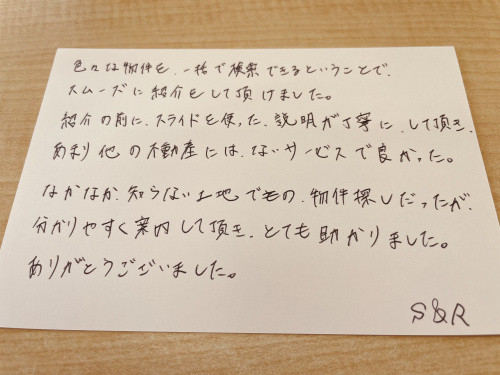 色々な物件を、一括で検索できるということで、
スムーズに紹介をして頂けました。
紹介の前に、スライドを使った、説明が丁寧に、して頂き、
あまり他の不動産には、ないサービスで良かった。
なかなか、知らない土地での、物件探しだったが、
分かりやすく案内して頂き、とても助かりました。
ありがとうございました。
S&R